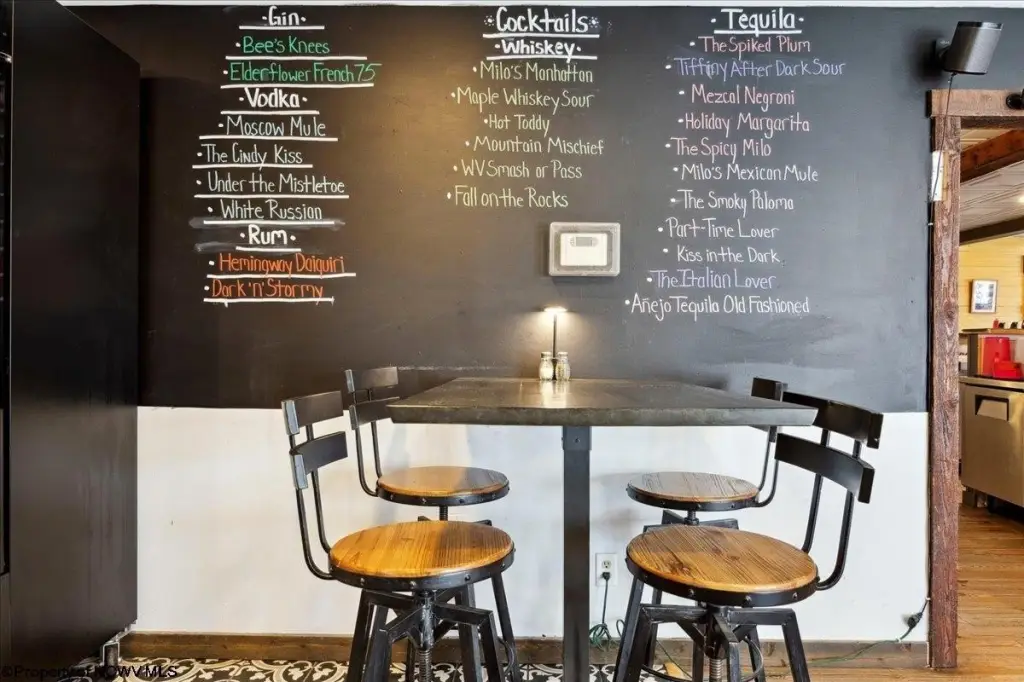 ·Gin·
·Bee's Knees
·Elderflower French 75
·Vodka·
·Moscow Mule
·The Cindy Kiss
·Under the Mistletoe
·White Russian
·Rum·
·Hemingway Daiquiri
·Dark 'n' Stormy
Cocktails
·Whiskey·
·Milo's Manhattan
·Maple Whiskey Sour
·Hot Toddy
·Mountain Mischief
·WV Smash or Pass
·Fall on the Rocks
·Tequila·
·The Spiked Plum
·Tiffiny After Dark Sour
·Mezcal Negroni
·Holiday Margarita
·The Spicy Milo
·Milo's Mexican Mule
·The Smoky Paloma
·Part-Time Lover
·Kiss in the Dark
·The Italian Lover
·Añejo Tequila Old Fashioned
©Property of NCWV MLS